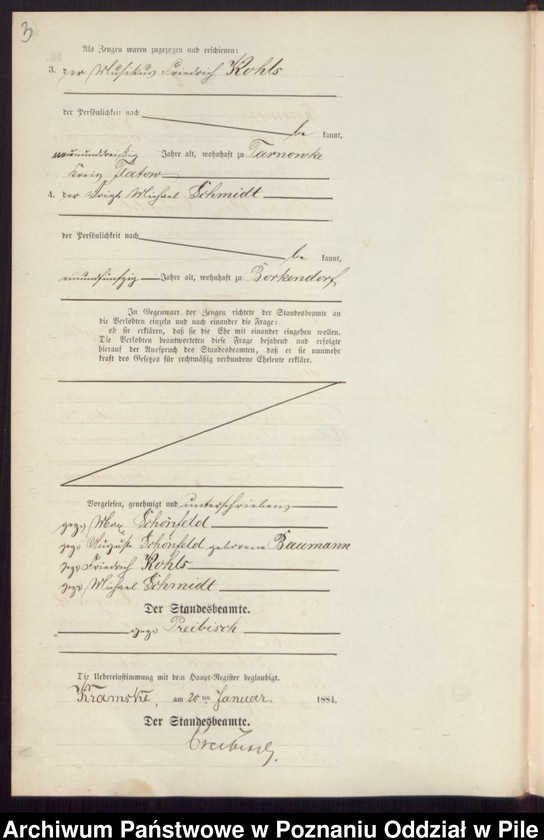 3
Als Zeugen waren zugezogen und erschienen:
3. der Musikus Friedrich Kohls
der Persönlichkeit nach
be kannt,
neununddreißig Jahre alt, wohnhaft zu Tarnowke
Kreis Flatow
4. der Voigt Michael Schmidt
der Persönlichkeit nach
be kannt,
einundfünfzig Jahre alt, wohnhaft zu Borkendorf
In Gegenwart der Zeugen richtete der Standesbeamte an
die Verlobten einzeln und nach einander die Frage:
ob sie erklären, daß sie die Ehe mit einander eingehen wollen.
Die Verlobten beantworteten diese Frage bejahend und erfolgte
hierauf der Ausspruch des Standesbeamten, daß er sie nunmehr
kraft des Gesetzes für rechtmäßig verbundene Eheleute erkläre.
Vorgelesen, genehmigt und unterschrieben
gez. Max Schönfeld
gez. Auguste Schönfeld geborene Baumann
gez. Friedrich Kohls
gez. Michael Schmidt
Der Standesbeamte.
gez. Preibisch
Die Uebereinstimmung mit dem Haupt-Register beglaubigt.
Kramske, am 20ten Januar 1884.
Der Standesbeamte.
Preibisch.
Archiwum Państwowe w Poznaniu Oddział w Pile